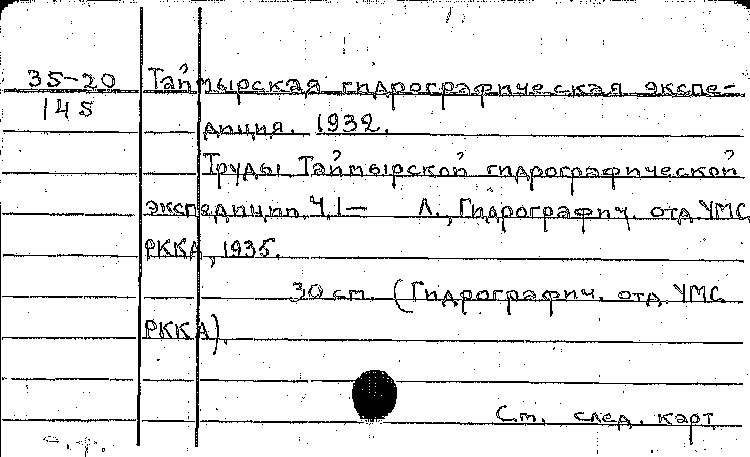 35-20
145
Таймырская гидрографическая экспе-
диция. 1932.
Труды Таймырской гидрографической
экспедиции Ч. I — Л., Гидрографич. отд. УМС
РККА, 1935.
30 cm. (Гидрографич. отд. УМС
РККА).
См. след. карт